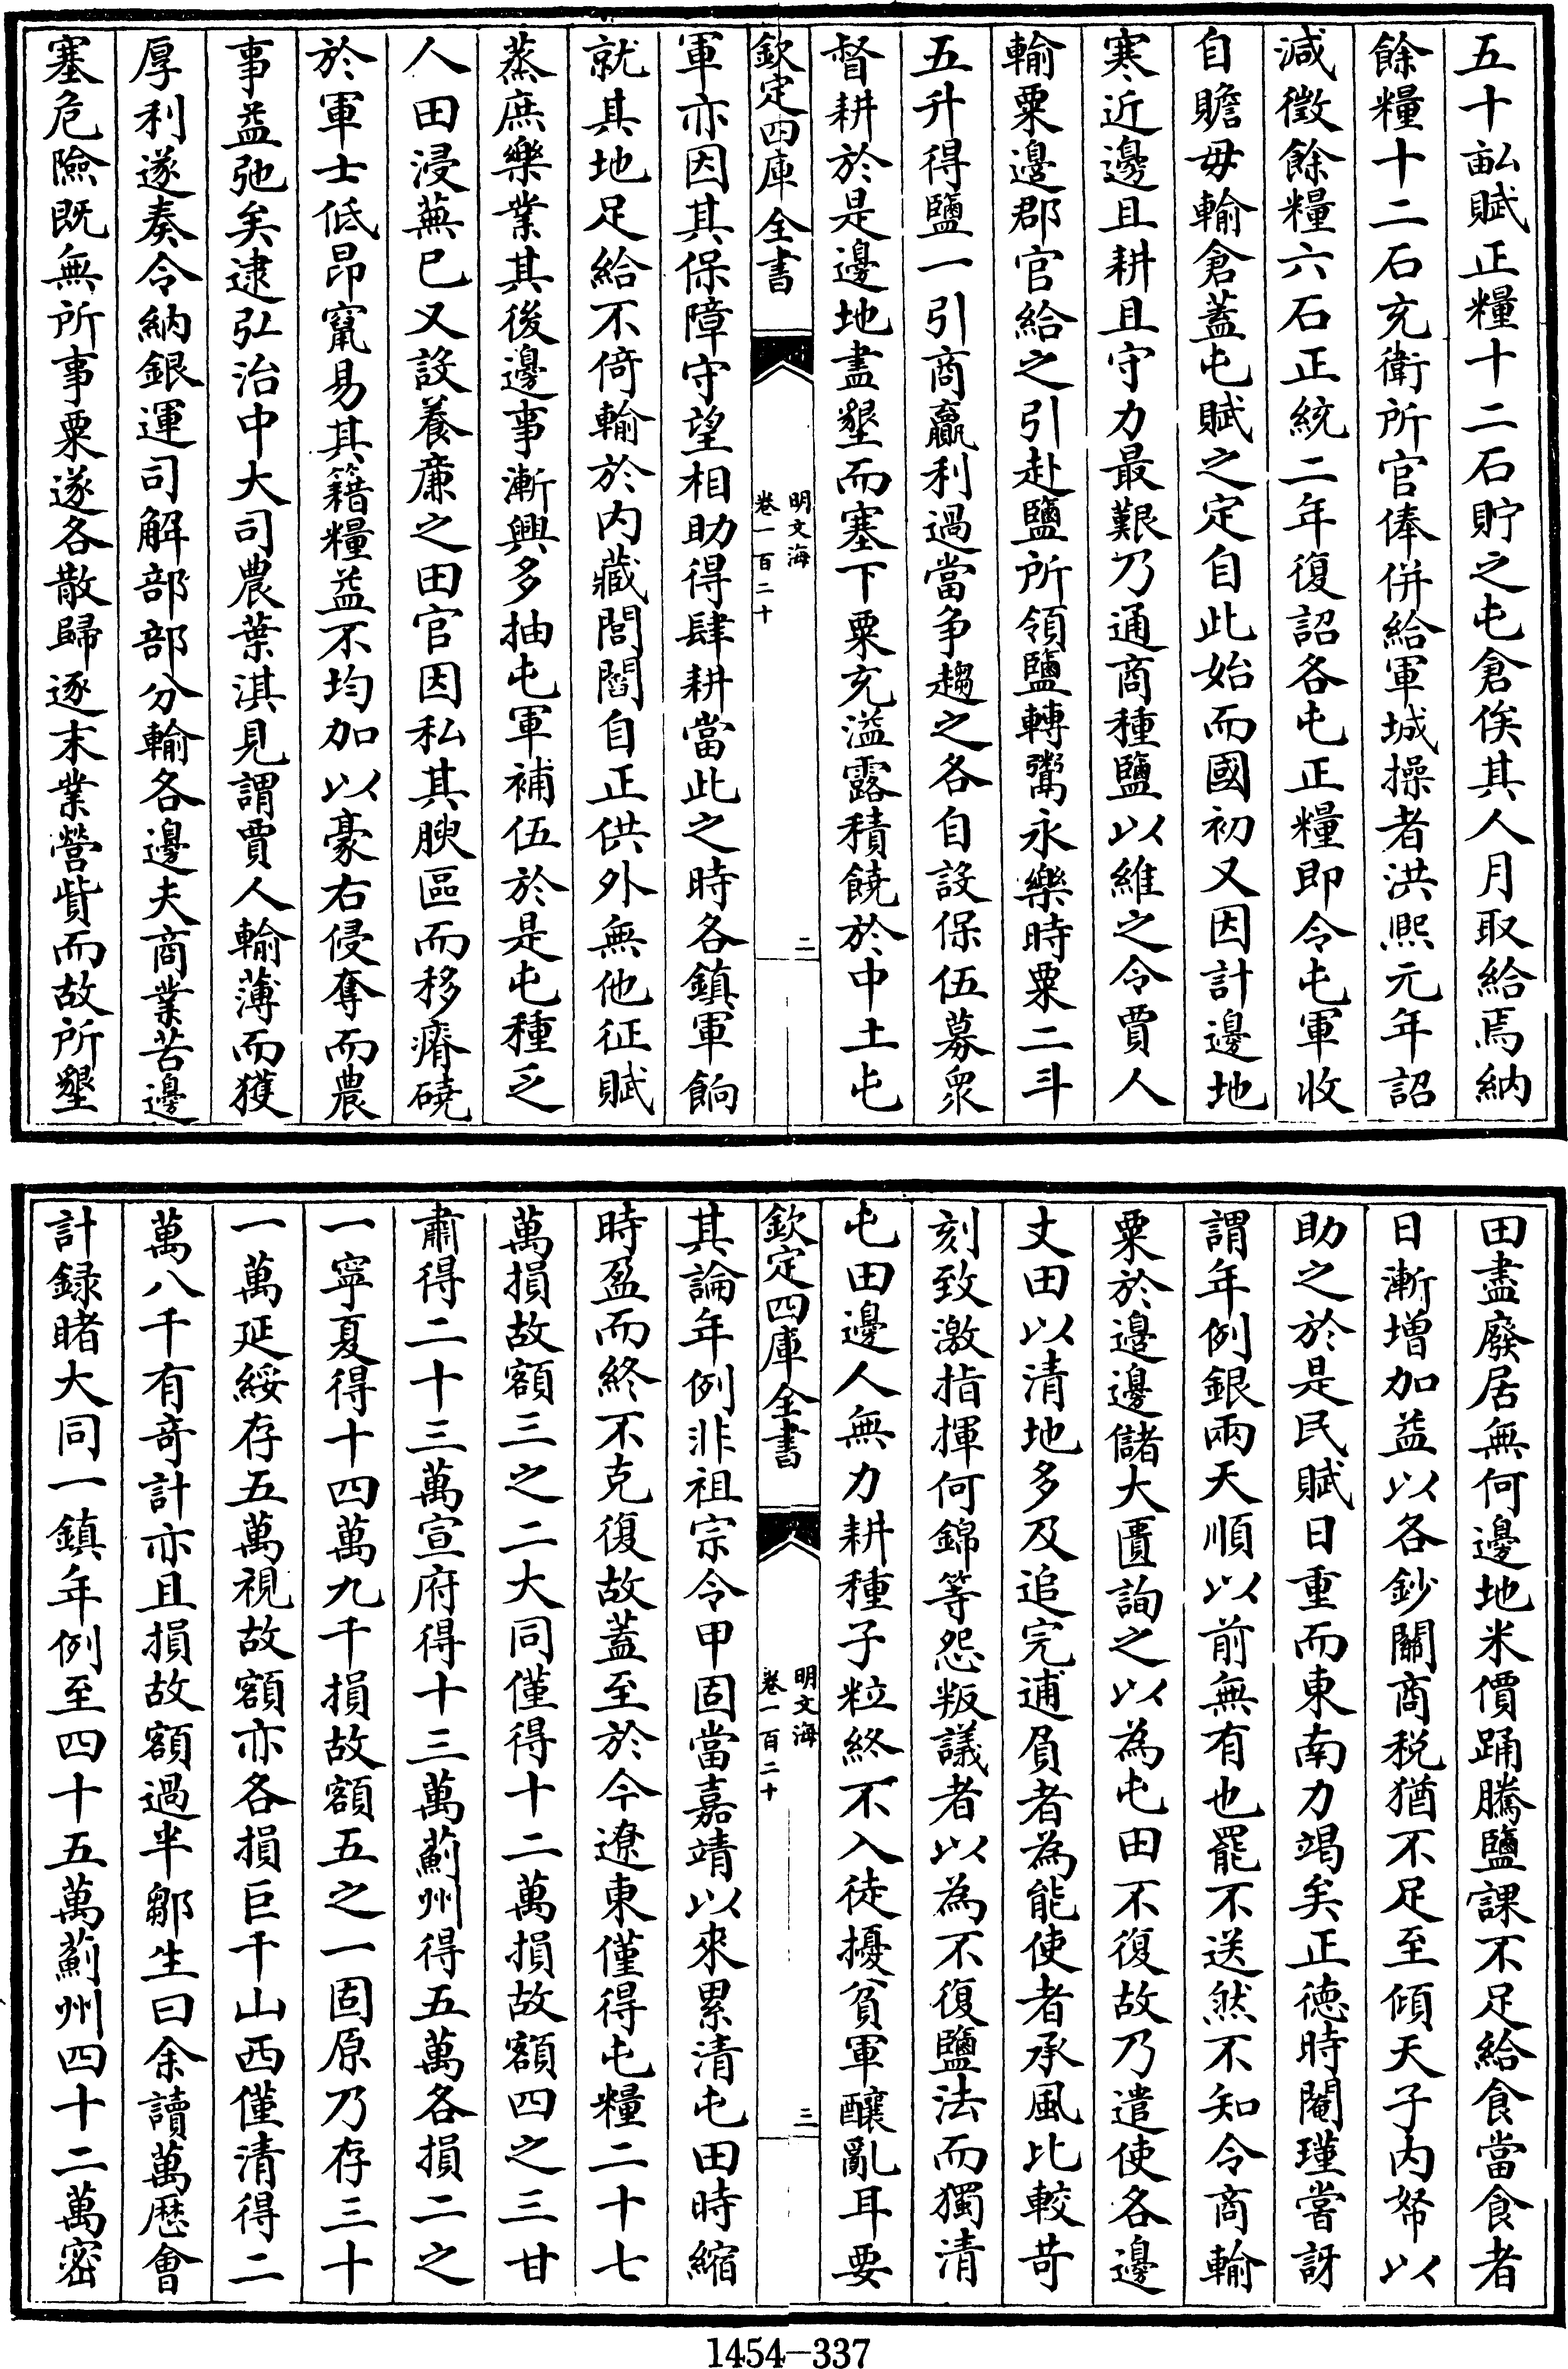 五十畝賦正糧十二石貯之屯倉俟其人月取給焉納
餘糧十二石充衛所官俸併給軍城操者洪熙元年詔
減徵餘糧六石正統二年復詔各屯正糧即令屯軍收
自贍毋輸倉蓋屯賦之定自此始而國初又因計邊地
寒近邊且耕且守力最艱乃通商種鹽以維之令賈人
輸粟邊郡官給之引赴鹽所領鹽轉鬻永樂時粟二斗
五升得鹽一引商贏利過當争趨之各自設保伍募衆
督耕於是邊地盡墾而塞下粟充溢露積饒於中土屯
欽定四庫全書
明文海
卷一百二十
二
軍亦因其保障守望相助得肆耕當此之時各鎮軍餉
就其地足給不倚輸於内藏閭閻自正供外無他征賦
蒸庶樂業其後邊事漸興多抽屯軍補伍於是屯種乏
人田浸蕪已又設養廉之田官因私其腴區而移瘠磽
於軍士低昂竄易其籍糧益不均加以豪右侵奪而農
事益弛矣逮弘治中大司農葉淇見謂賈人輸薄而獲
厚利遂奏令納銀運司解部部分輸各邊夫商業苦邊
塞危險既無所事粟遂各散歸逐末業營貲而故所墾
田盡廢居無何邊地米價踊騰鹽課不足給食當食者
日漸增加益以各鈔關商税猶不足至傾天子内帑以
助之於是民賦日重而東南力竭矣正德時閹瑾嘗訝
謂年例銀兩天順以前無有也罷不送然不知令商輸
粟於邊邊儲大匱詢之以為屯田不復故乃遣使各邊
丈田以清地多及追完逋負者為能使者承風比較苛
刻致激指揮何錦等怨叛議者以為不復鹽法而獨清
屯田邊人無力耕種子粒終不入徒擾貧軍釀亂耳要
欽定四庫全書
明文海
卷一百二十
三
其論年例非祖宗令甲固當嘉靖以來累清屯田時縮
時盈而終不克復故蓋至於今遼東僅得屯糧二十七
萬損故額三之二大同僅得十二萬損故額四之三甘
肅得二十三萬宣府得十三萬薊州得五萬各損二之
一寧夏得十四萬九千損故額五之一固原乃存三十
一萬延綏存五萬視故額亦各損巨千山西僅清得二
萬八千有奇計亦且損故額過半鄒生曰余讀萬厯會
計録睹大同一鎮年例至四十五萬薊州四十二萬密
1454—337